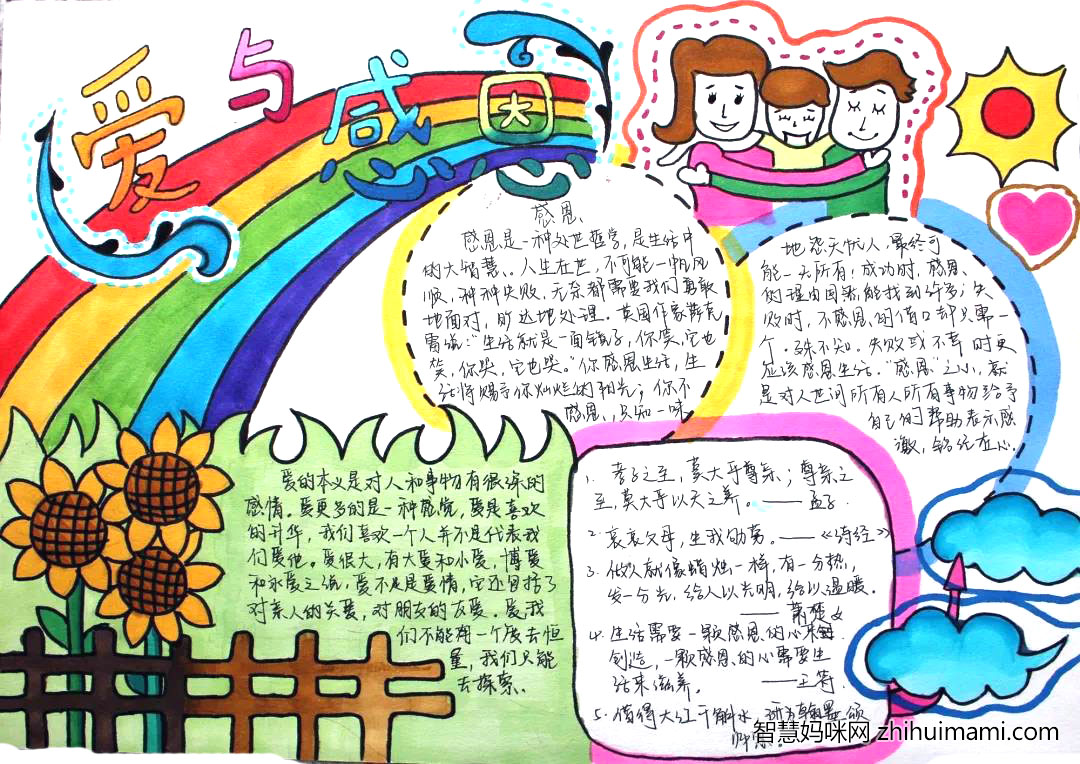 爱与感恩
感恩
感恩是一种处世哲学,是生活中
的大智慧。人生在世,不可能一帆风
顺,种种失败、无奈都需要我们勇敢
地面对,旷达地处理。英国作家萨克
雷说:"生活就是一面镜子,你笑,它也
笑,你哭,它也哭。"你感恩生活,生
活将赐予你灿烂的阳光;你不
感恩,只知一味
地怨天忧人,最终可
能一无所有!成功时,感恩
的理由固然能找到许多;失
败时,不感恩的借口却只需一
个。殊不知,失败或不幸时更
应该感恩生活。"感恩"之心,就
是对人世间所有人所有事物给予
自己的帮助表示感
激,铭记在心。
爱的本义是对人和事物有很深的
感情。爱更多的是一种感觉,爱是喜欢
的升华,我们喜欢一个人并不是代表我
们爱他。爱很大,有大爱和小爱,博爱
和永爱之说,爱不只是爱情,它还包括了
对亲人的关爱,对朋友的友爱。爱我
们不能用一个度去恒
量,我们只能
去探索。
1. 孝子之至,莫大乎尊亲;尊亲之
至,莫大乎以天之养。——孟子
2. 哀哀父母,生我劬劳。——《诗经》
3. 做人就像蜡烛一样,有一分热,
发一分光,给人以光明,给以温暖。
——萧楚女
4. 生活需要一颗感恩的心来
创造,一颗感恩的心需要生
活来滋养。 ——王符
5. 借得大江千斛水,研为翰墨颂
师恩。
智慧妈咪网 zhihuimami.com